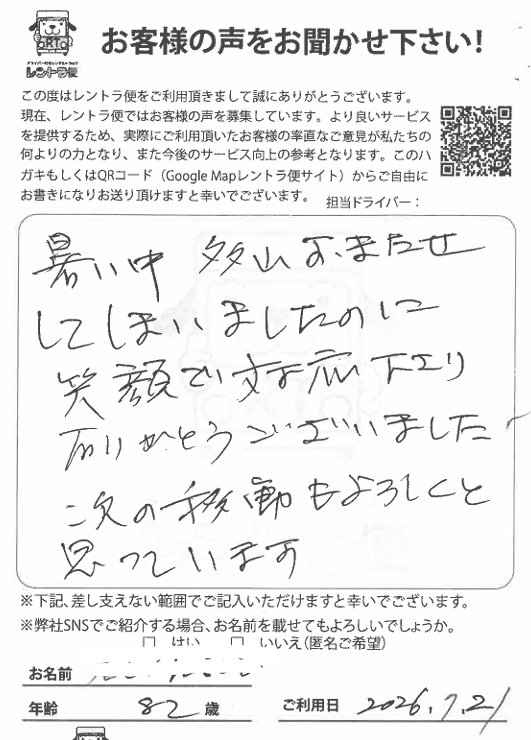 お客様の声をお聞かせ下さい!
RT
ドライバー付きレンタルトラック
レントラ便
この度はレントラ便をご利用頂きまして誠にありがとうございます。
現在、レントラ便ではお客様の声を募集しています。より良いサービス
を提供するため、実際にご利用頂いたお客様の率直なご意見が私たちの
何よりの力となり、また今後のサービス向上の参考となります。このハ
ガキもしくはQRコード（Google Mapレントラ便サイト）からご自由に
お書きになりお送り頂けますと幸いでございます。 担当ドライバー：
暑い中 多山おまたせ
してしまいましたのに
笑顔で対応下さり
ありがとうございました
次の移動もよろしくと
思っています
※下記、差し支えない範囲でご記入いただけますと幸いでございます。
※弊社SNSでご紹介する場合、お名前を載せてもよろしいでしょうか。
□ はい □ いいえ（匿名ご希望）
お名前
年齢 82 歳 ご利用日 2026.7.21